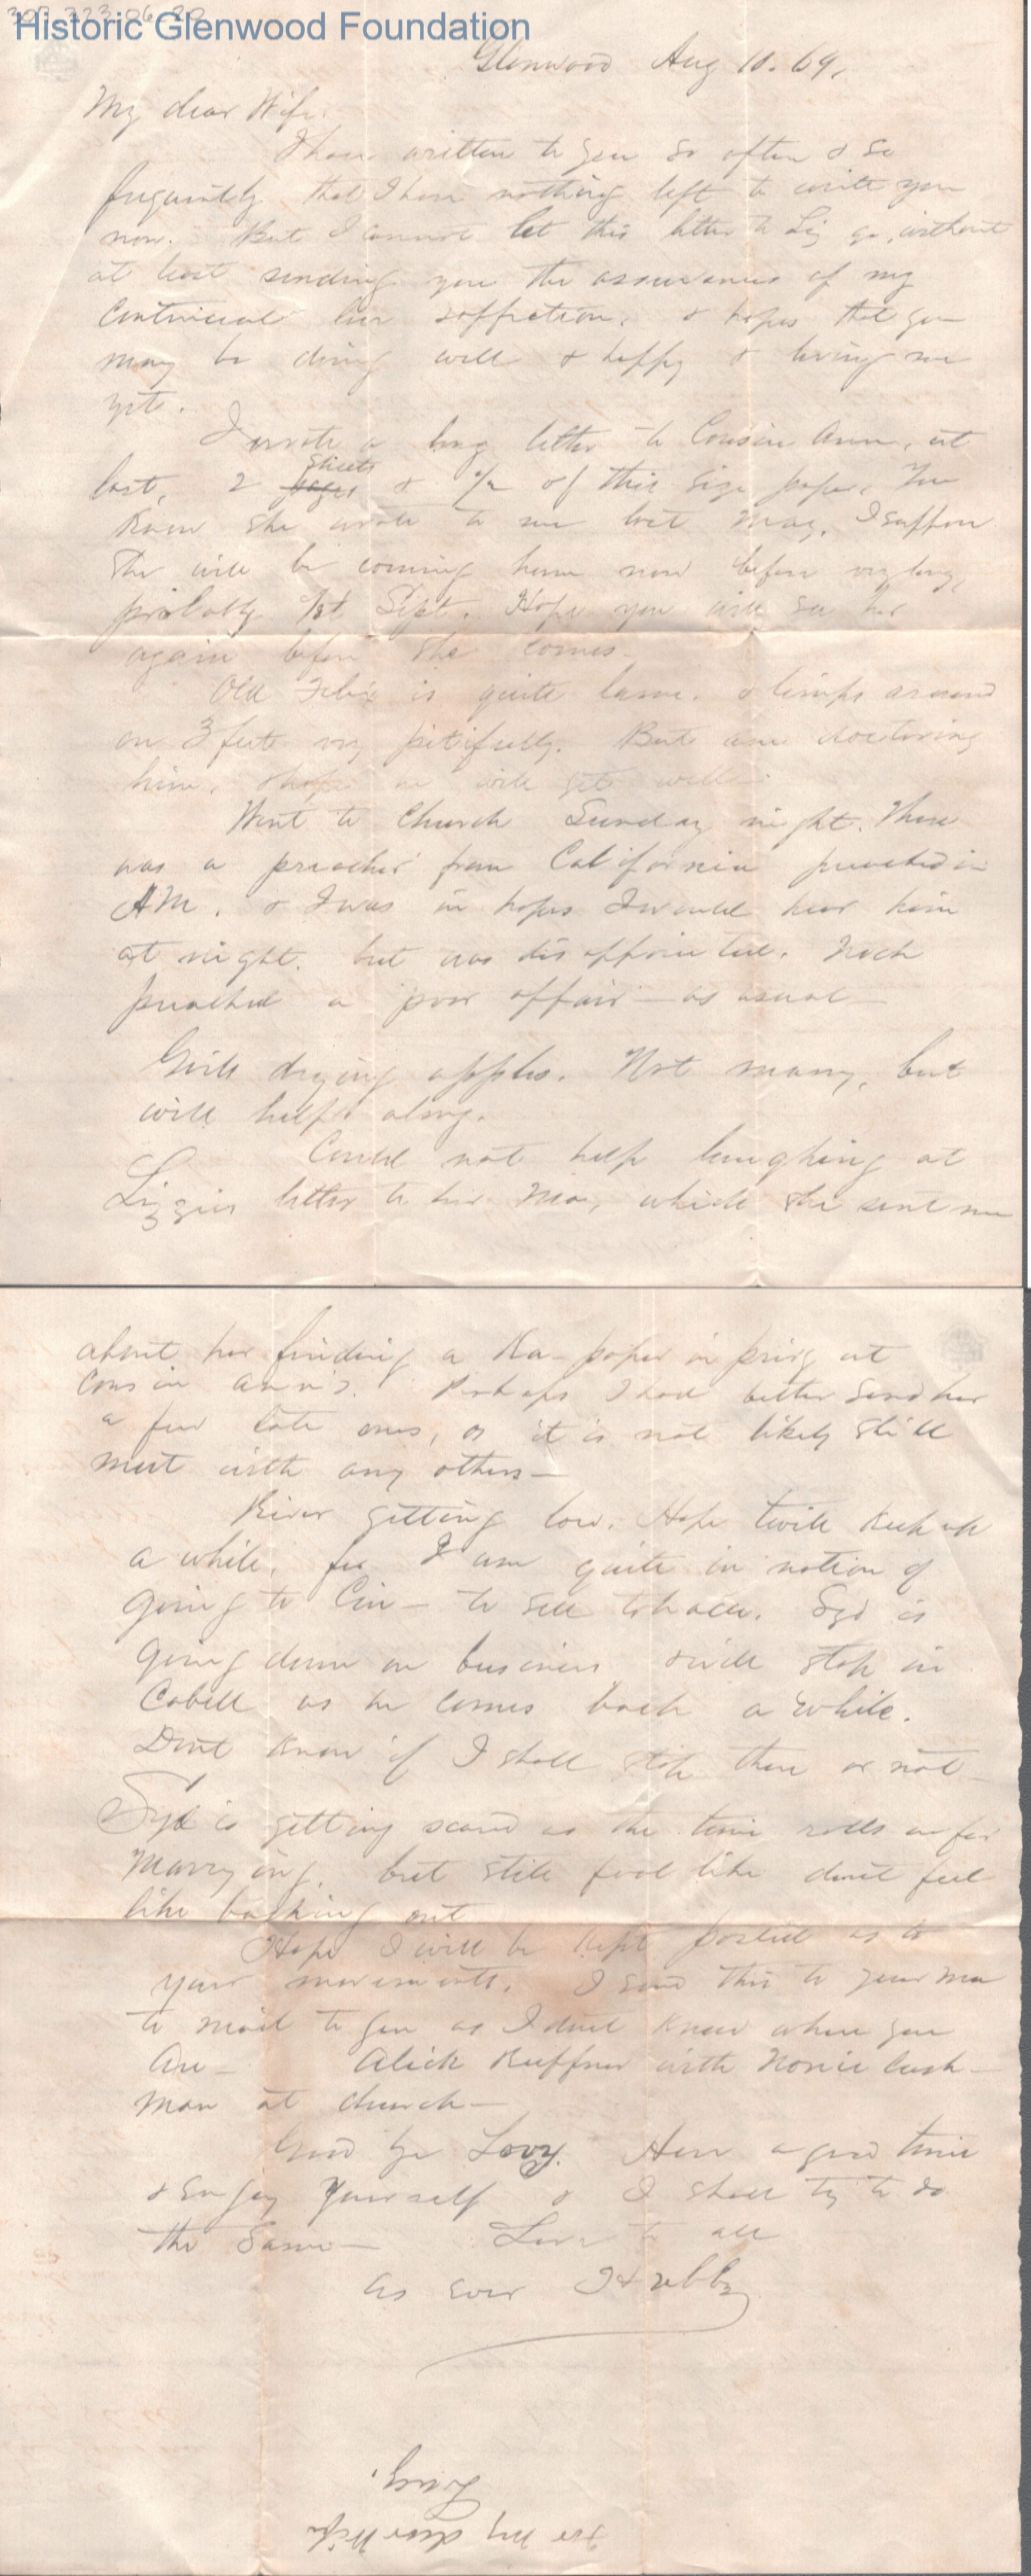 Historic Glenwood Foundation
Glenwood Aug 10. 69.
My dear Wife.
I have written to you so often & so
frequently that I have nothing left to write you
now. But I cannot let this letter to Liz go, without
at least sending you the assurances of my
continued love & affection, & hopes that you
may be doing well & happy & loving me
yet.
I wrote a long letter to Cousin Ann, at
sheets
last, 2 pages & 1/2 of this size paper. You
know she wrote to me last May. I suppose
she will be coming home now before very long,
probably 1st Sept. Hope you will see her
again before she comes.
Old Felix is quite lame. & limps around
on 3 feet very pitifully. But am doctoring
him, & hope he will get well.
Went to Church Sunday night. There
was a preacher from California preached in
AM. & I was in hopes I would hear him
at night. but was disappointed.
preached a poor affair - as usual -
Girls drying apples. Not many, but
will help along.
Could not help laughing at
Lizzies letter to her Ma, which she sent me
about her finding a Ka- paper in privy at
Cousin Ann's. Perhaps I had better send her
a few late ones, as it is not likely she'll
meet with any others -
River getting low. Hope twill keep up
a while, for I am quite in notion of
going to Cin - to sell tobacco. Syd is
going down on business & will stop in
Cabell as he comes back a while.
Dont know if I shall stop there or not -
Syd is getting scared as the time rolls on for
marrying, but still fool like dont feel
like backing out
Hope I will be kept posted as to
your movements. I send this to your Ma
to mail to you as I dont know where you
are - Alick Ruffner with Nonie Cush-
man at church -
Good bye Lovy. Have a good time
& enjoy yourself & I shall try to do
the same - Love to all
as ever Hubby
For My dear Wife